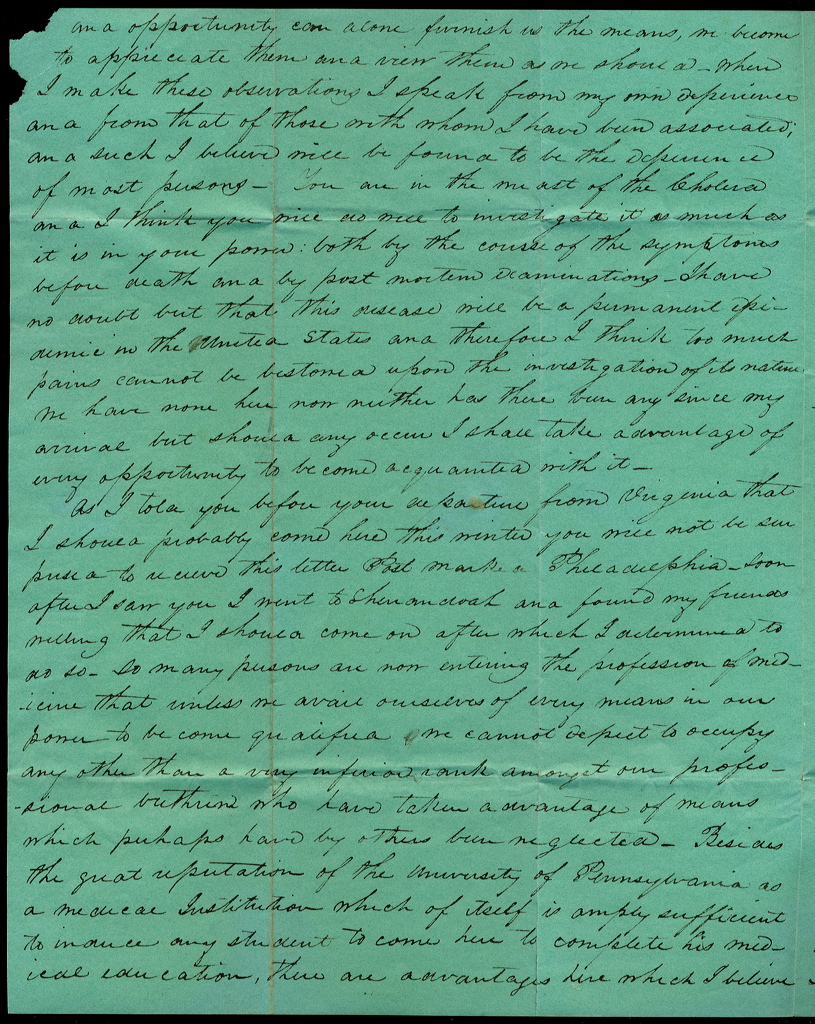 and opportunity can alone furnish us the means, we become
to appreciate them and view them as we should - When
I make these observations I speak from my own experience
and from that of those with whom I have been associated;
and such I believe will be found to be the experience
of most persons - You are in the midst of the Cholera
and I think you will do well to investigate it as much as
it is in your power: both by the course of the symptoms
before death and by post mortem examinations - I have
no doubt but that this disease will be a permanent epi-
demic in the United States and therefore I think too much
pains cannot be bestowed upon the investigation of its nature
We have none here now neither has there been any since my
arrival but should any occur I shall take advantage of
every opportunity to become acquainted with it -
As I told you before your departure from Virginia that
I should probably come here this winter you will not be sur
prised to recieve this letter Post marked Philadelphia - Soon
after I saw you I went to Shenandoah and found my friends
willing that I should come on after which I determined to
do so - So many persons are now entering the profession of med-
-icine that unless we avail ourselves of every means in our
power to become qualified, we cannot expect to occupy
any other than a very inferior rank amongst our profes-
-sional brethren who have taken advantage of means
which perhaps have by others been neglected - Besides
the great reputation of the University of Pennsylvania as
a medical Institution which of itself is amply sufficient
to induce any student to come here to complete his med-
ical education, there are advantages here which I believe